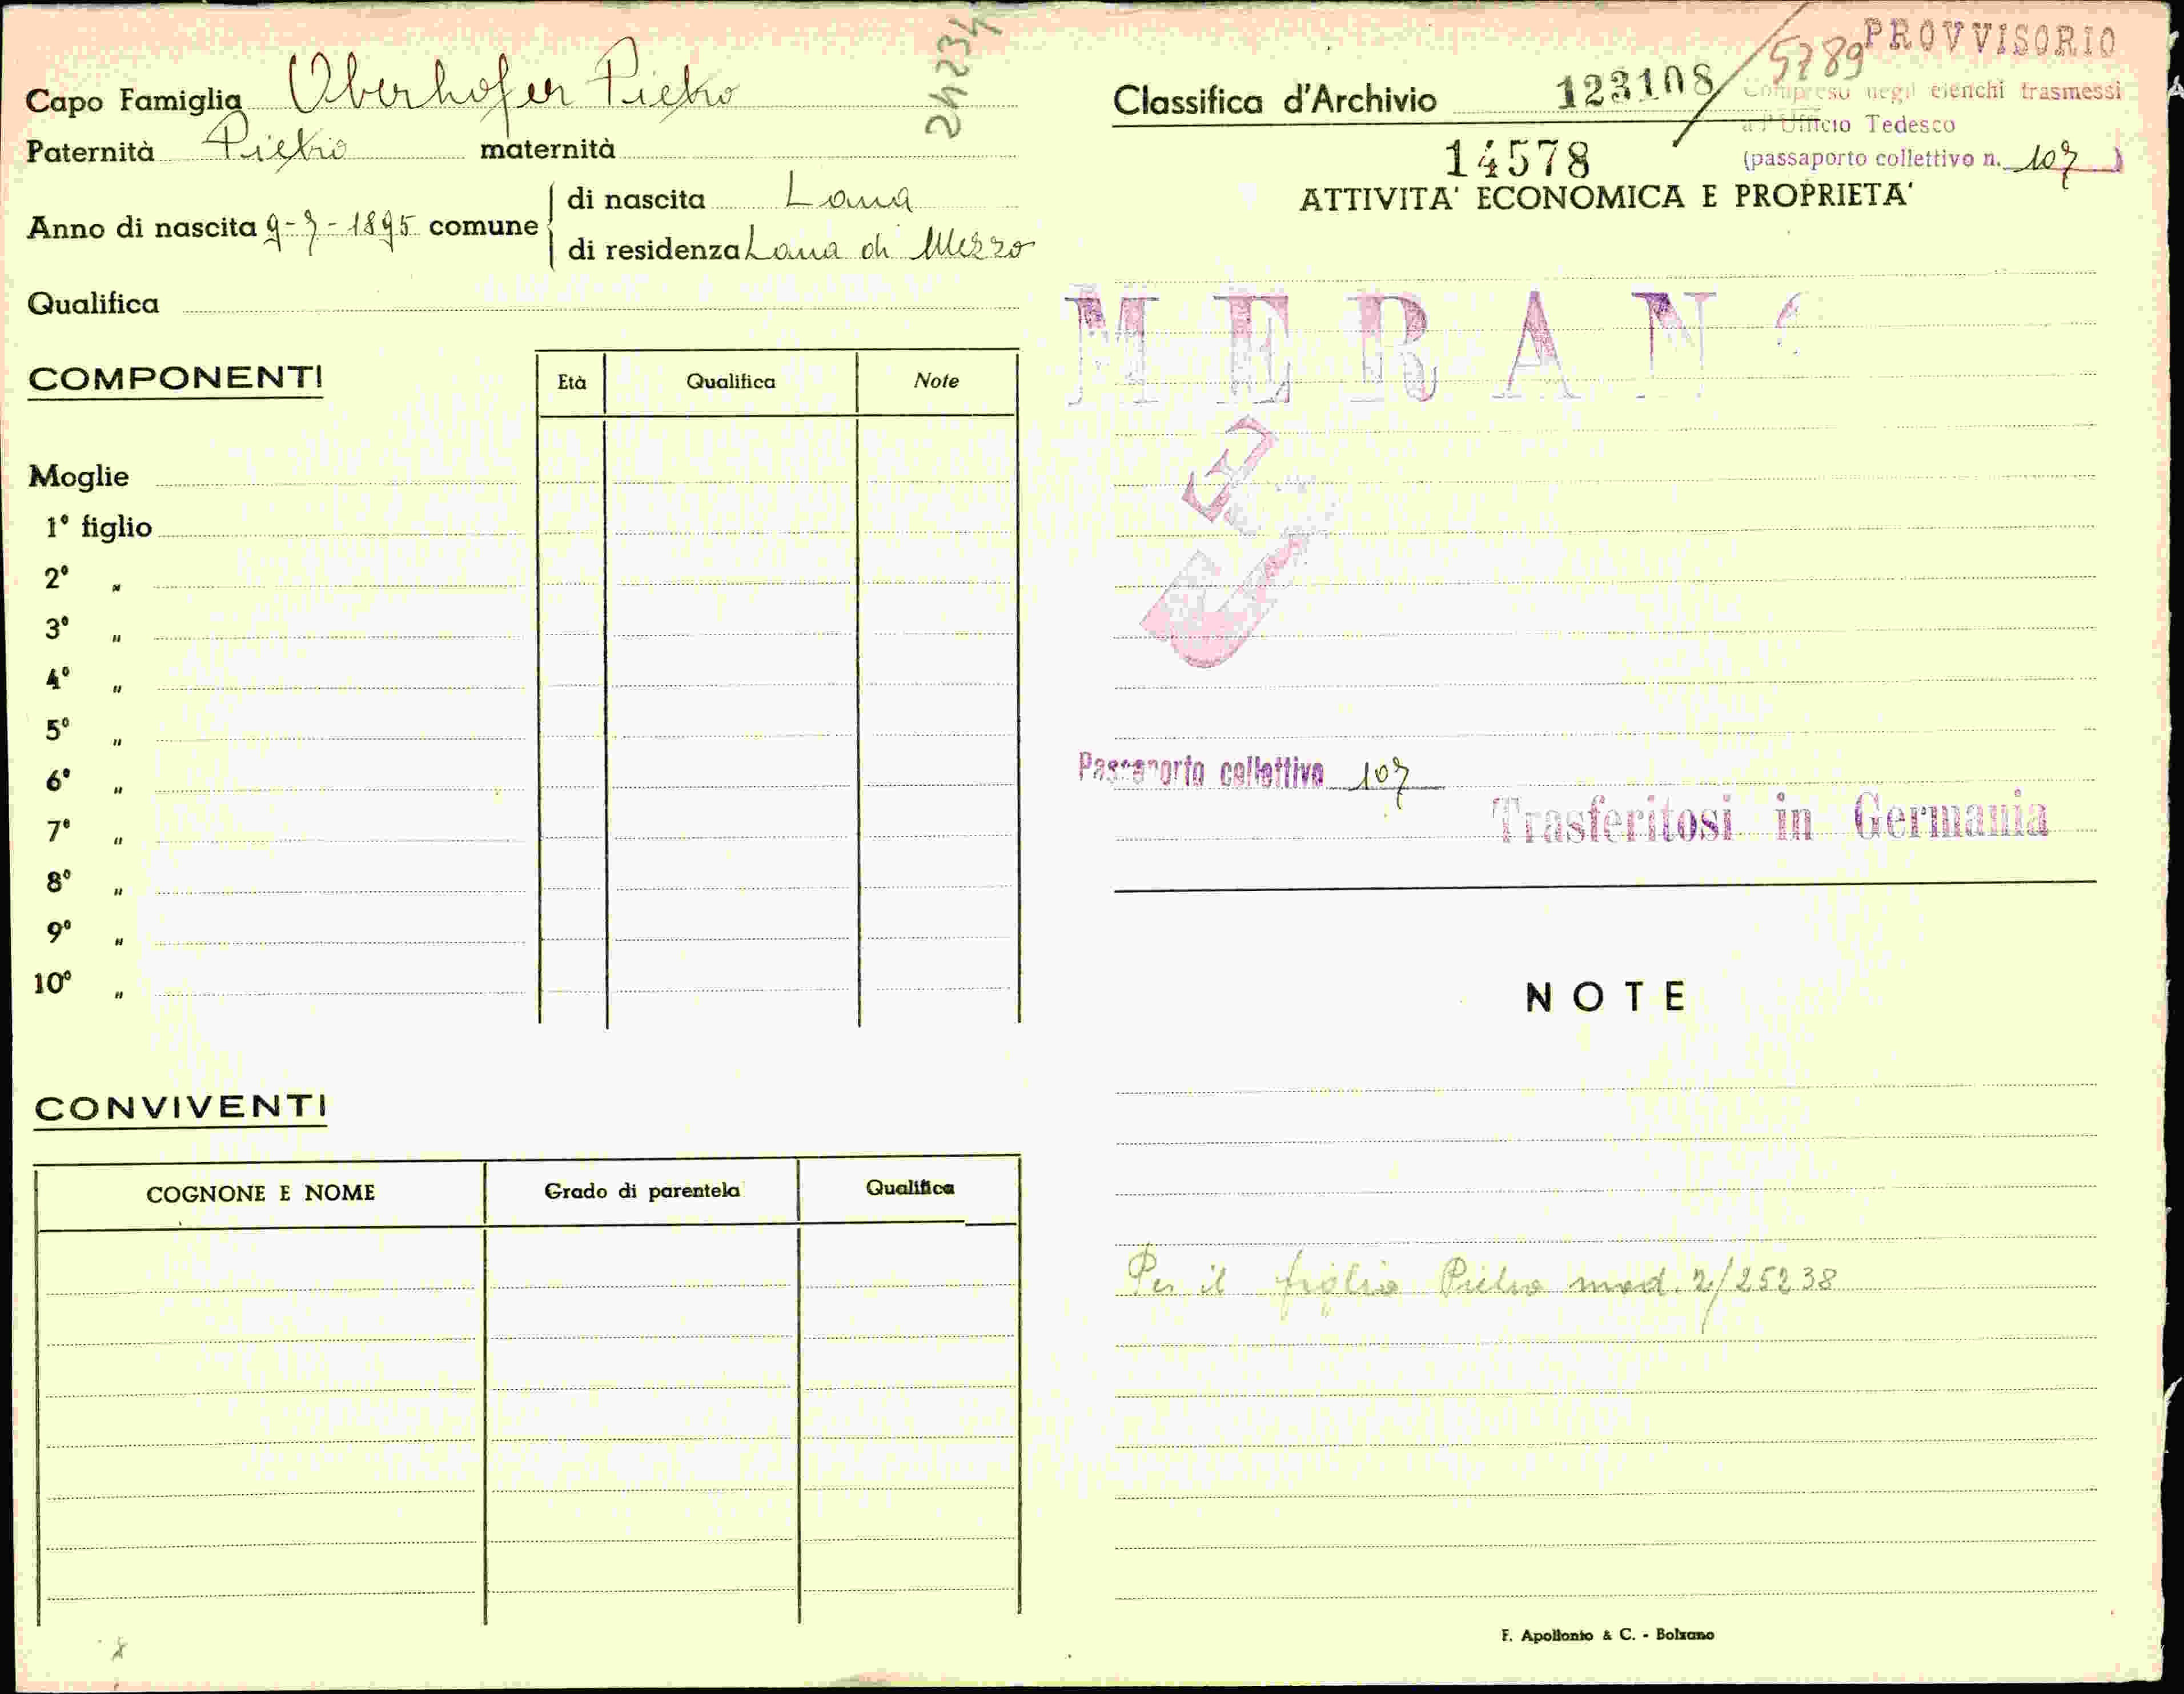 Capo Famiglia Oberhofer Pietro
24234
Paternità Pietro maternità
Anno di nascita 9-7-1895 comune
di nascita Lana
di residenza Lana di Mezzo
Qualifica
COMPONENTI
Età Qualifica Note
Moglie
1° figlio
2° "
3° "
4° "
5° "
6° "
7° "
8° "
9° "
10° "
CONVIVENTI
COGNONE E NOME Grado di parentela Qualifica
PROVVISORIO
Classifica d'Archivio 123108/5789
Compreso negli elenchi trasmessi
a l'Ufficio Tedesco
14578 (passaporto collettivo n. 107)
ATTIVITA' ECONOMICA E PROPRIETA'
MERANO
Passaporto collettivo 107
Trasferitosi in Germania
NOTE
Per il figlio Pietro mod. 2/25238
F. Apollonio & C. - Bolzano